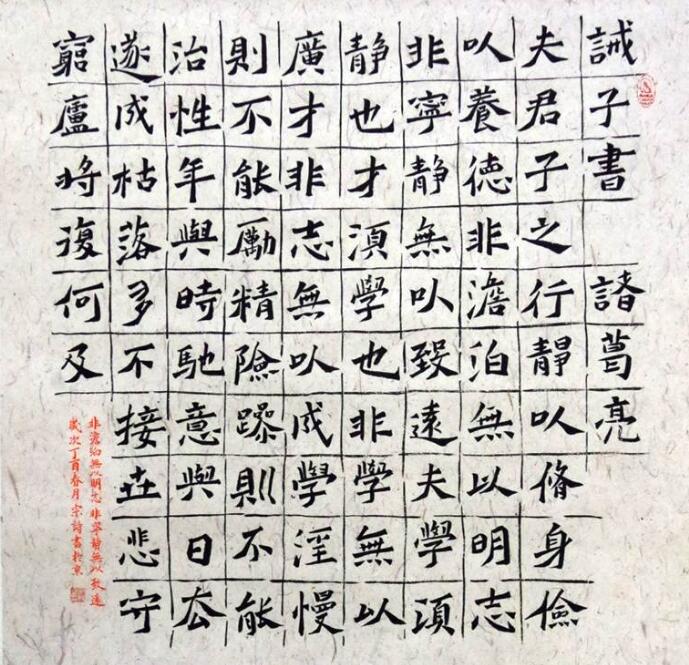 誡子書 諸葛亮
夫君子之行靜以脩身儉
以養德非澹泊無以明志
非寧靜無以致遠夫學須
靜也才須學也非學無以
廣才非志無以成學淫慢
則不能勵精險躁則不能
治性年與時馳意與日去
遂成枯落多不接世悲守
窮廬將復何及
非澹泊無以明志 非寧靜無以致遠
歲次丁酉春月 宗詩書於京